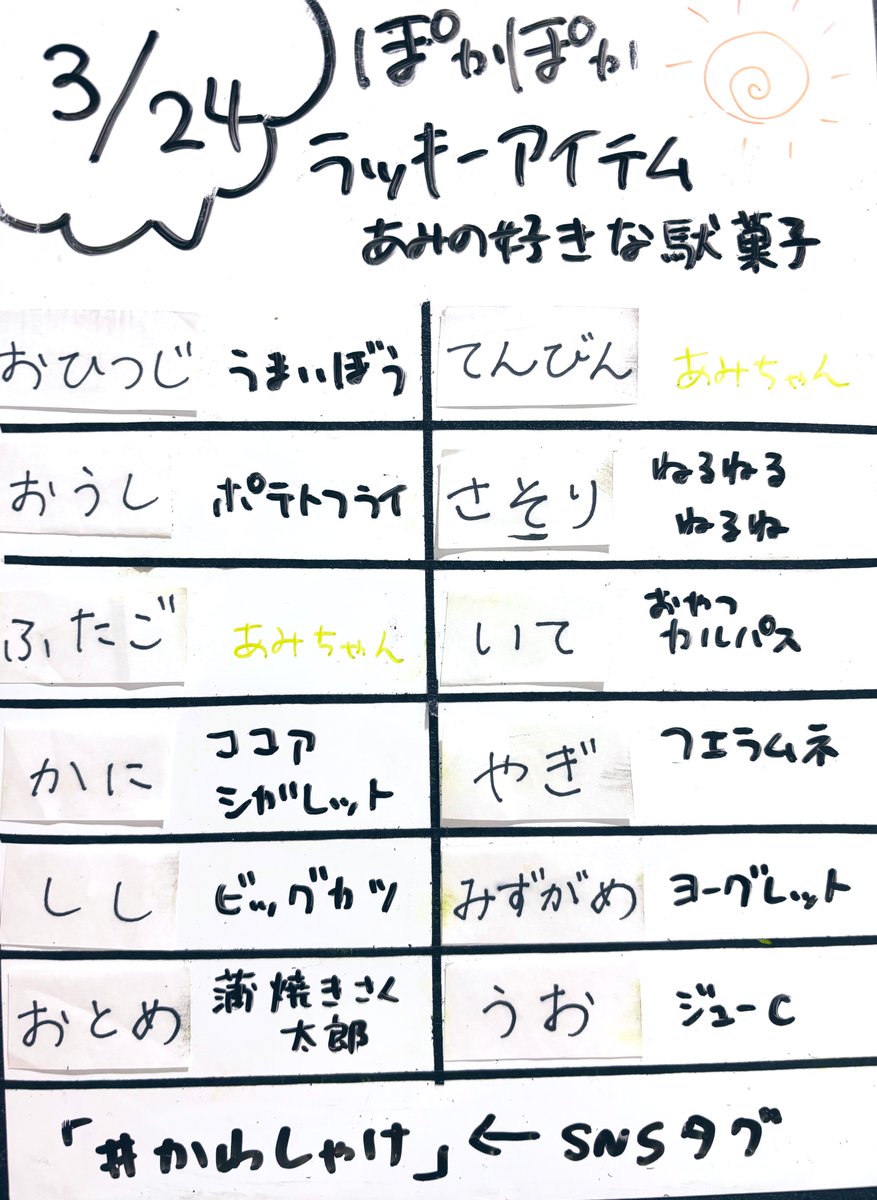 3/24
ぽかぽか
ラッキーアイテム
あみの好きな駄菓子
おひつじ うまいぼう
てんびん あみちゃん
おうし ポテトフライ
さそり ねるねる
ねるね
ふたご あみちゃん
いて おやつ
カルパス
かに ココア
シガレット
やぎ フエラムネ
しし ビッグカツ
みずがめ ヨーグレット
おとめ 蒲焼きさく
太郎
うお ジューC
「#かわしゃけ」←SNSタグ